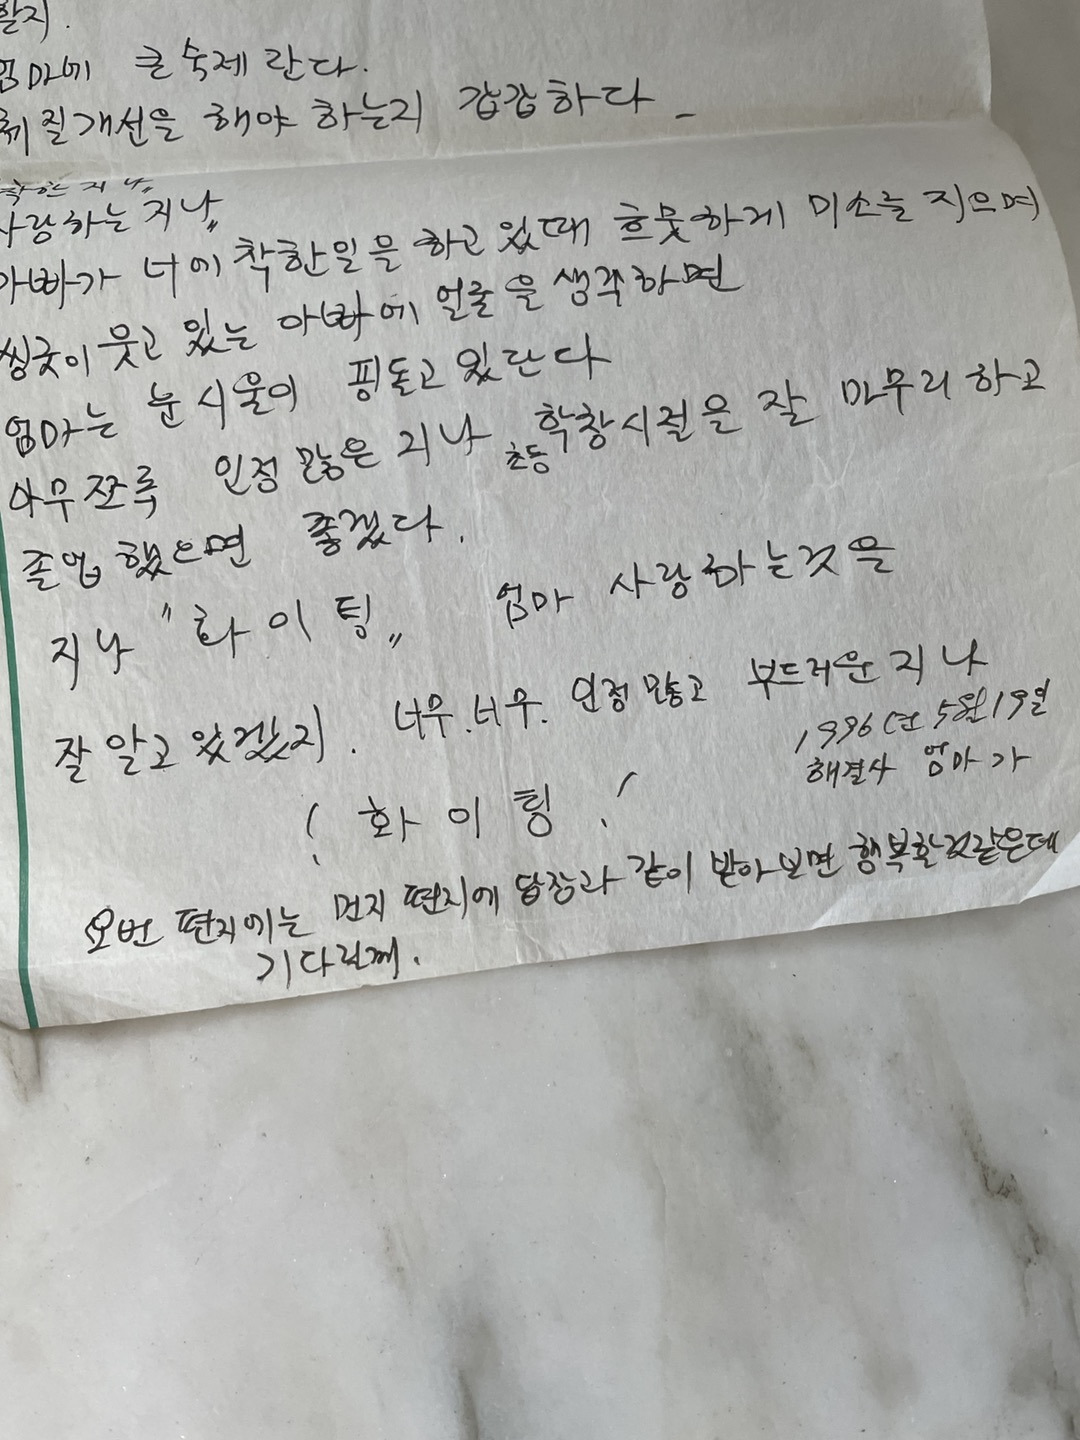 할지.
엄마에 큰숙제란다.
체질개선을 해야 하는지 갑갑하다
착한 지나"
사랑하는 지나"
아빠가 너에 착한일을 하고 있때 흐뭇하게 미소를 지으며
씽긋이 웃고 있는 아빠에 얼굴을 생각하면
엄마는 눈시울이 핑돌고 있단다
아무쪼록 인정 많은 지나 초등 학창시절을 잘 마무리 하고
졸업했으면 좋겠다.
지나 "화이팅" 엄마 사랑하는것을
잘 알고 있겠지. 너무.너무. 인정 많고 부드러운 지나
1996년 5월 19일
해결사 엄마가
( 화 이 팅 !
요번 편지에는 먼저 편지에 답장과 같이 받아보면 행복할것같은데
기다릴께.